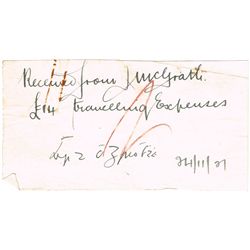 Received from J McGrath
£14 travelling Expenses
24/11/21